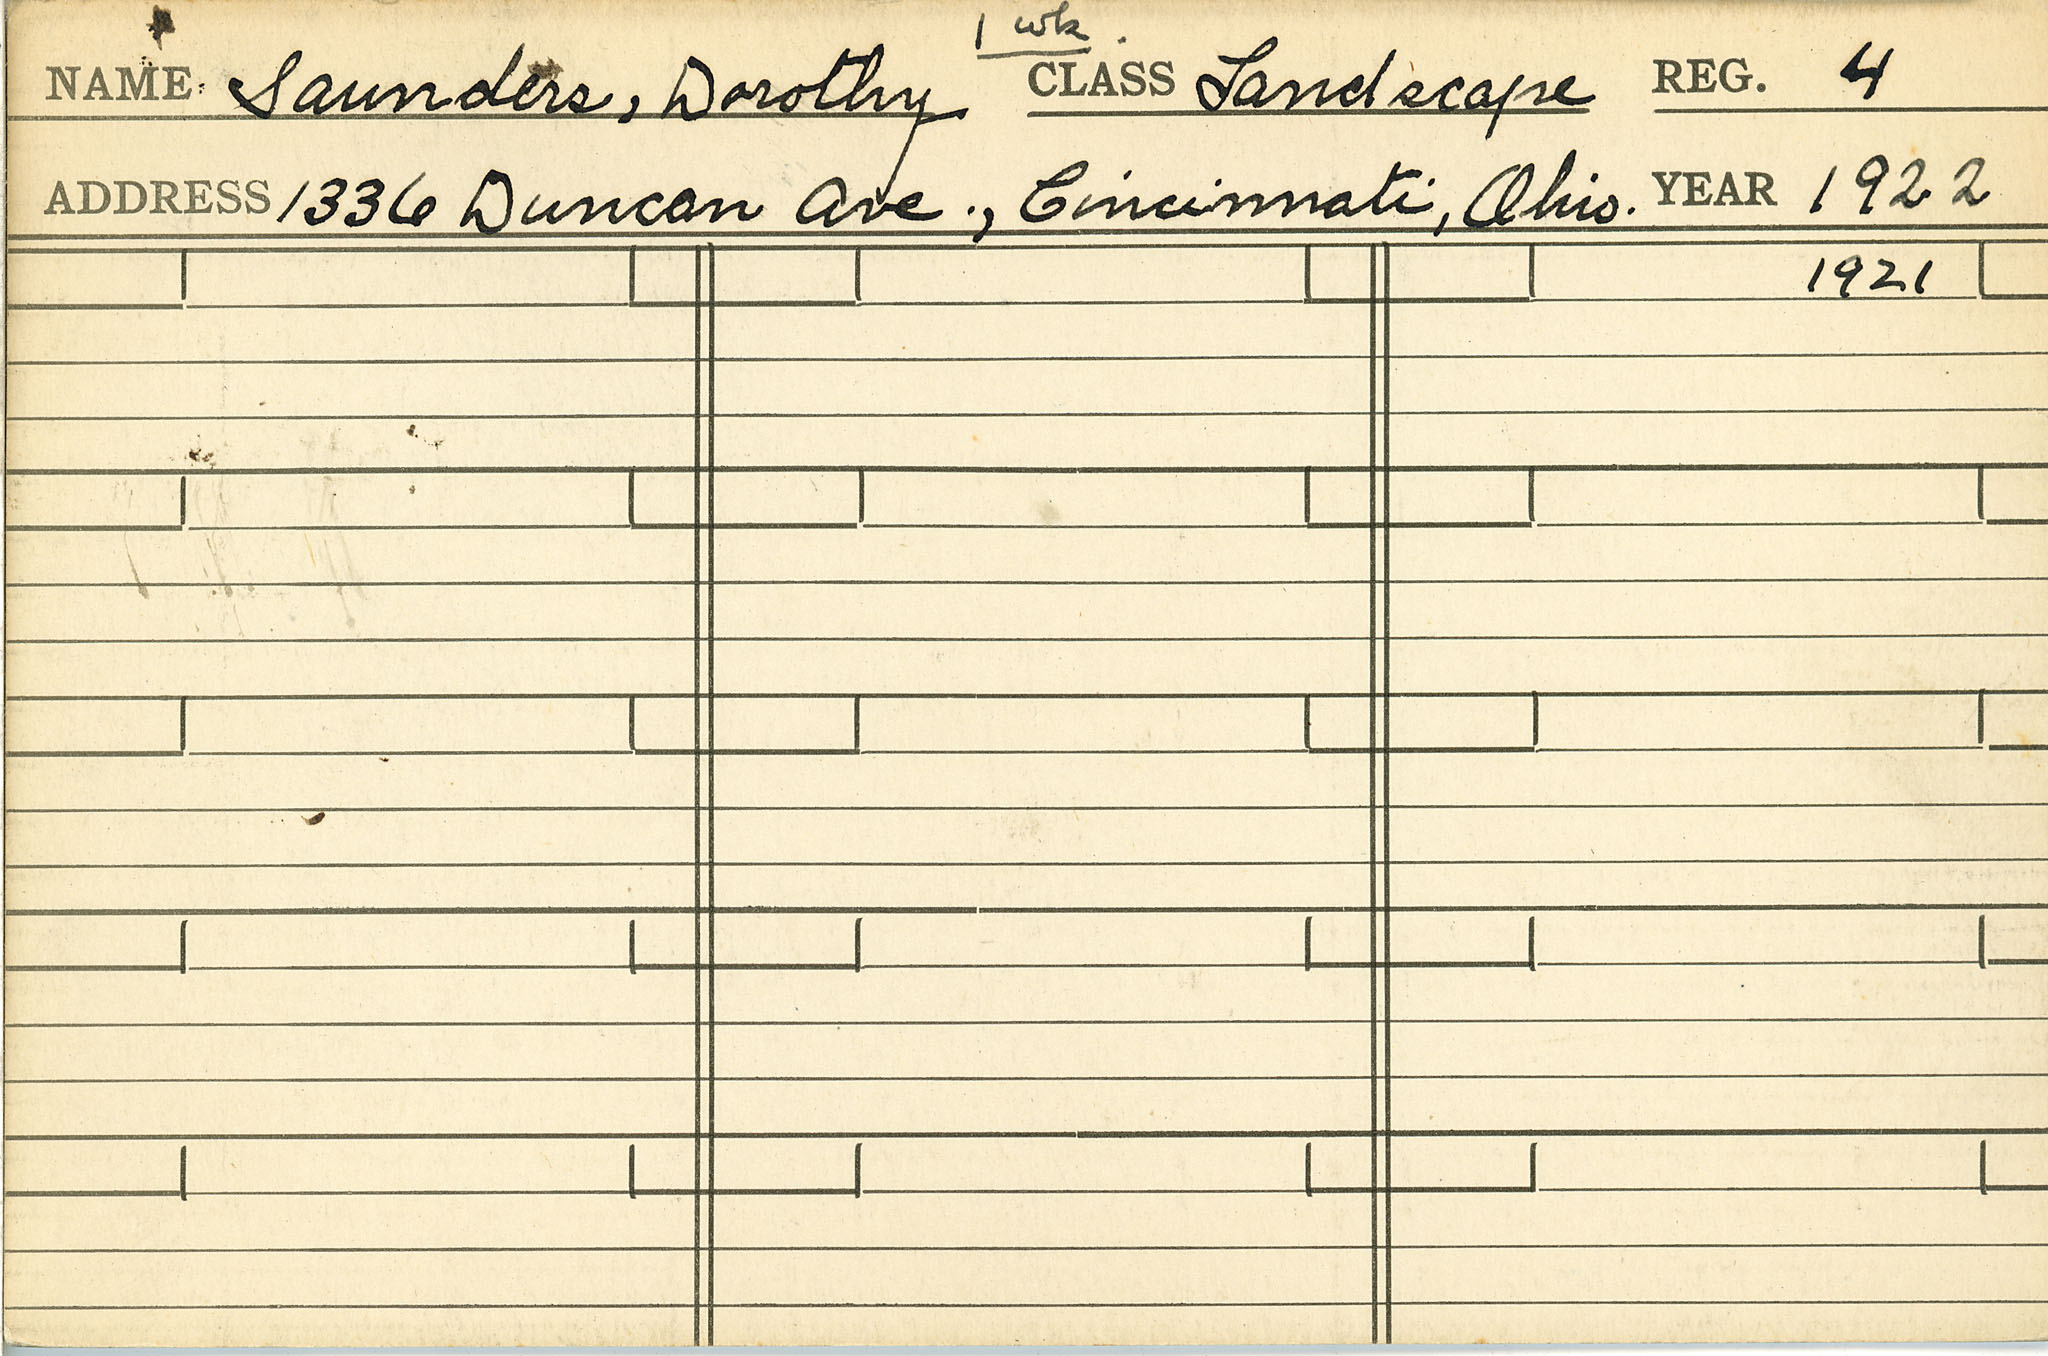 1 wk.
NAME Saunders, Dorothy CLASS Landscape REG. 4
ADDRESS 1336 Duncan Ave., Cincinnati, Ohio. YEAR 1922
1921